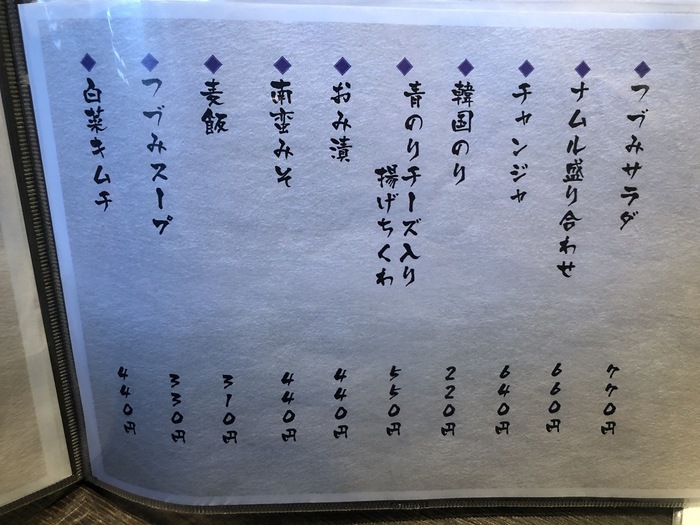 ◆つづみサラダ 770円
◆ナムル盛り合わせ 660円
◆チャンジャ 640円
◆韓国のり 220円
◆青のりチーズ入り
揚げちくわ 550円
◆おみ漬 440円
◆南蛮みそ 440円
◆麦飯 310円
◆つづみスープ 330円
◆白菜キムチ 440円